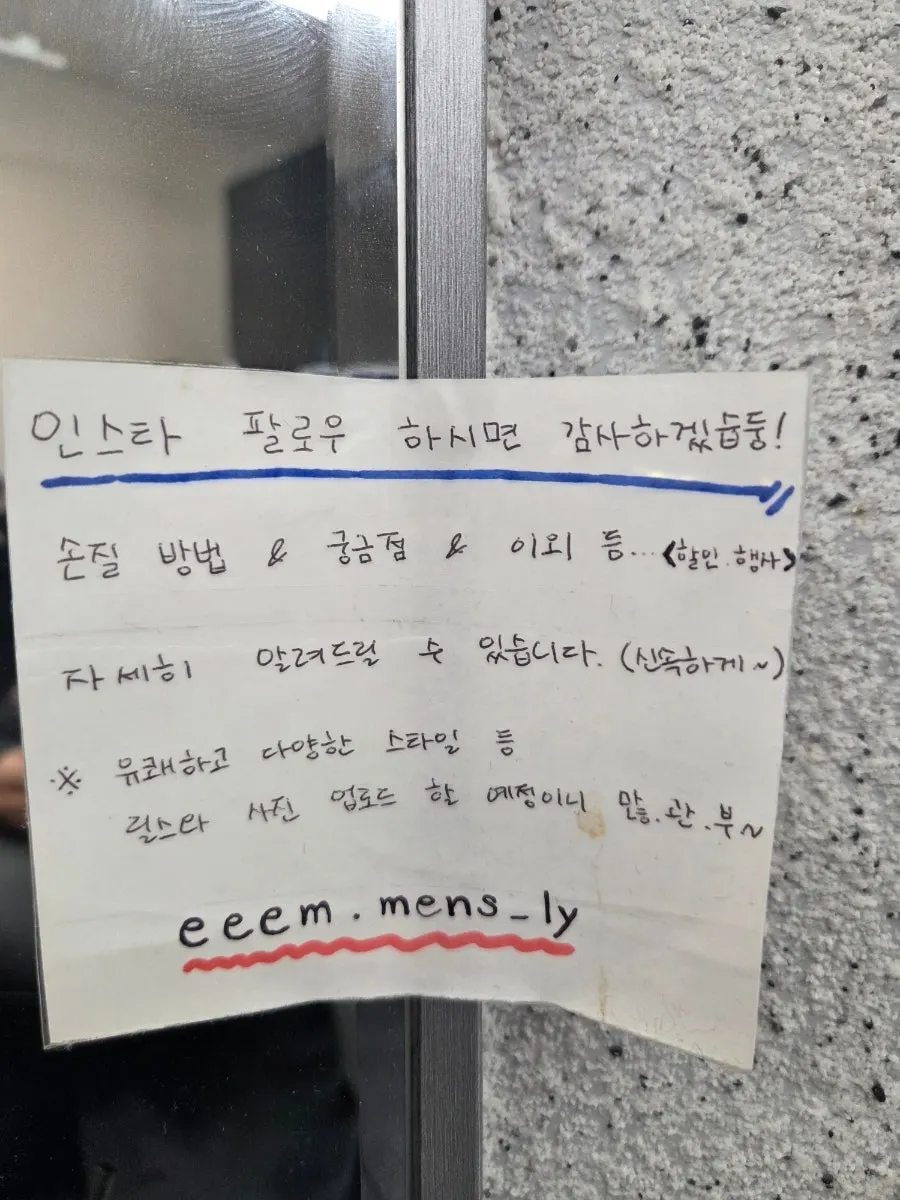 인스타 팔로우 하시면 감사하겠습둥!
손질 방법 & 궁금점 & 이외 등... <할인.행사>
자세히 알려드릴 수 있습니다. (신속하게~)
※ 유쾌하고 다양한 스타일 등
릴스와 사진 업로드 할 예정이니 많.관.부~
eeem.mens_ly